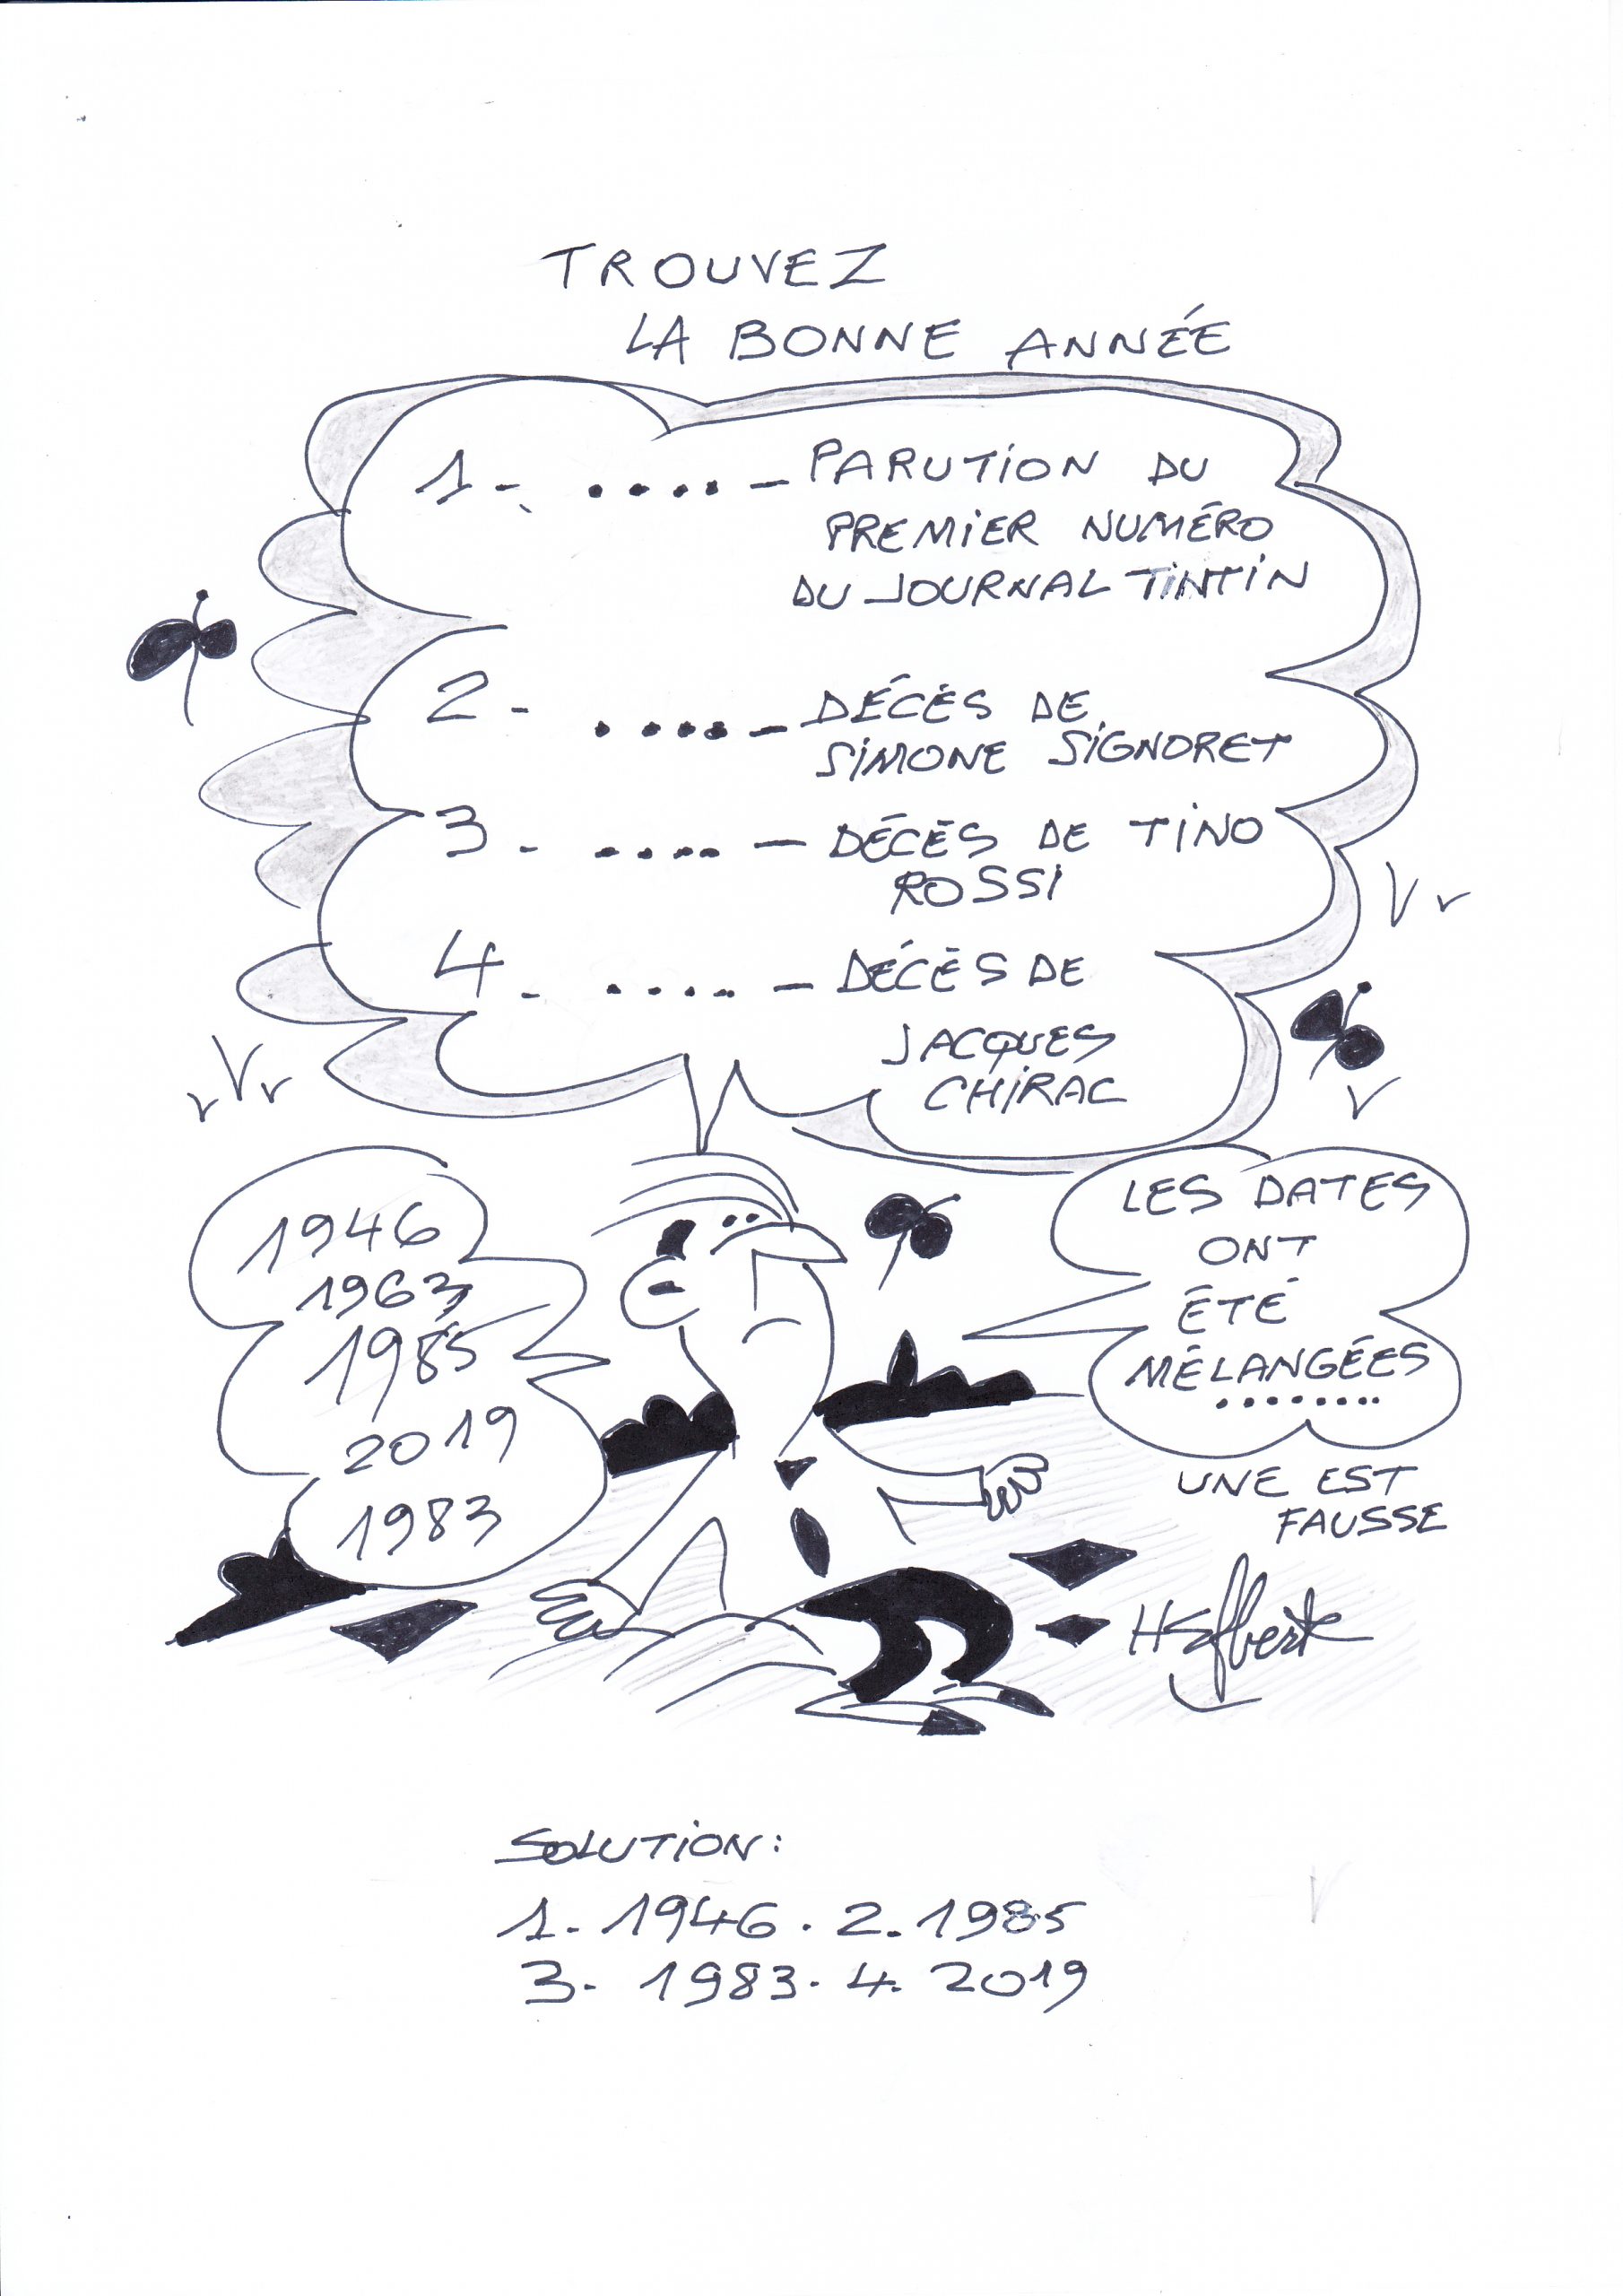 TROUVEZ
LA BONNE ANNÉE
1 - .... - PARUTION DU
PREMIER NUMÉRO
DU JOURNAL TINTIN
2 - .... - DÉCÈS DE
SIMONE SIGNORET
3 - .... - DÉCÈS DE TINO
ROSSI
4 - .... - DÉCÈS DE
JACQUES
CHIRAC
1946
1963
1985
2019
1983
LES DATES
ONT
ÉTÉ
MÉLANGÉES
........
UNE EST
FAUSSE
SOLUTION:
1. 1946. 2. 1985
3. 1983. 4. 2019